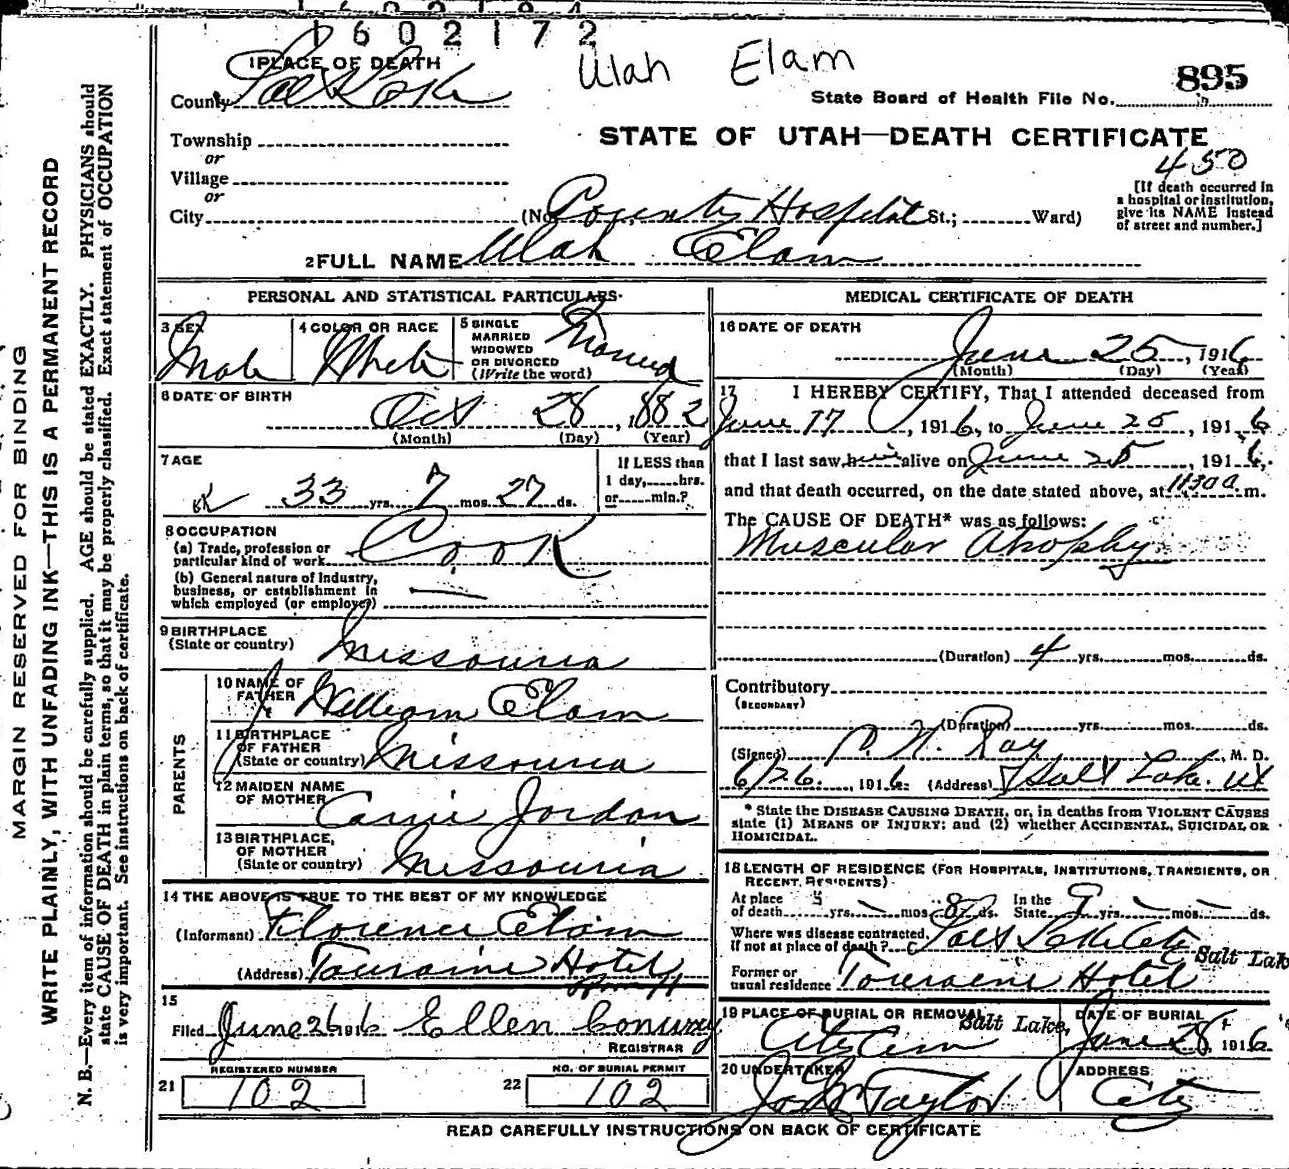 1602172
Utah Elam
1 PLACE OF DEATH
County Salt Lake
895
State Board of Health File No.
Township
STATE OF UTAH—DEATH CERTIFICATE
or
450
Village
or
City (No. County Hospital St.; Ward)
[If death occurred in
a hospital or institution,
give its NAME instead
of street and number.]
2 FULL NAME Utah Elam
PERSONAL AND STATISTICAL PARTICULARS
3 SEX
Male
4 COLOR OR RACE
White
5 SINGLE
MARRIED
WIDOWED
OR DIVORCED
(Write the word)
Married
6 DATE OF BIRTH
Oct 28, 1882
(Month) (Day) (Year)
7 AGE
33 yrs. 7 mos. 27 ds.
If LESS than
1 day, hrs.
or min.?
8 OCCUPATION
(a) Trade, profession or
particular kind of work Cook
(b) General nature of industry,
business, or establishment in
which employed (or employer)
9 BIRTHPLACE
(State or country) Missouria
PARENTS
10 NAME OF
FATHER J. William Elam
11 BIRTHPLACE
OF FATHER
(State or country) Missouria
12 MAIDEN NAME
OF MOTHER Carrie Jordan
13 BIRTHPLACE,
OF MOTHER
(State or country) Missouria
14 THE ABOVE IS TRUE TO THE BEST OF MY KNOWLEDGE
(Informant) Florence Elam
(Address) Touraine Hotel
15
Filed June 26 1916 Ellen Conway
REGISTRAR
21 REGISTERED NUMBER
102
22 NO. OF BURIAL PERMIT
102
MEDICAL CERTIFICATE OF DEATH
16 DATE OF DEATH
June 25, 1916
(Month) (Day) (Year)
17 I HEREBY CERTIFY, That I attended deceased from
June 17, 1916, to June 25, 1916
that I last saw him alive on June 25, 1916,
and that death occurred, on the date stated above, at 1130a m.
The CAUSE OF DEATH* was as follows:
Muscular Atrophy
(Duration) 4 yrs. mos. ds.
Contributory
(SECONDARY)
(Duration) yrs. mos. ds.
(Signed) P. N. Ray, M. D.
6/26, 1916. (Address) Salt Lake. Ut
* State the DISEASE CAUSING DEATH, or, in deaths from VIOLENT CAUSES
state (1) MEANS OF INJURY; and (2) whether ACCIDENTAL, SUICIDAL OR
HOMICIDAL.
18 LENGTH OF RESIDENCE (FOR HOSPITALS, INSTITUTIONS, TRANSIENTS, OR
RECENT RESIDENTS)
At place
of death yrs. mos. 8 ds. In the
State 9 yrs. mos. ds.
Where was disease contracted,
if not at place of death? Salt Lake City
Salt Lak
Former or
usual residence Touraine Hotel
19 PLACE OF BURIAL OR REMOVAL
City Cem Salt Lake,
DATE OF BURIAL
June 28, 1916
20 UNDERTAKER
Jos Wm Taylor
ADDRESS
City
READ CAREFULLY INSTRUCTIONS ON BACK OF CERTIFICATE
MARGIN RESERVED FOR BINDING
WRITE PLAINLY, WITH UNFADING INK—THIS IS A PERMANENT RECORD
N. B.—Every item of information should be carefully supplied. AGE should be stated EXACTLY. PHYSICIANS should
state CAUSE OF DEATH in plain terms, so that it may be properly classified. Exact statement of OCCUPATION
is very important. See instructions on back of certificate.